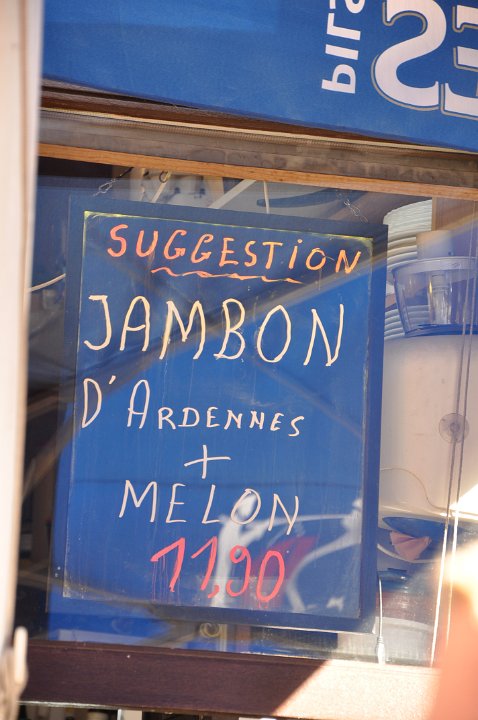 PILS
SUGGESTION
JAMBON
D'ARDENNES
+
MELON
11,90